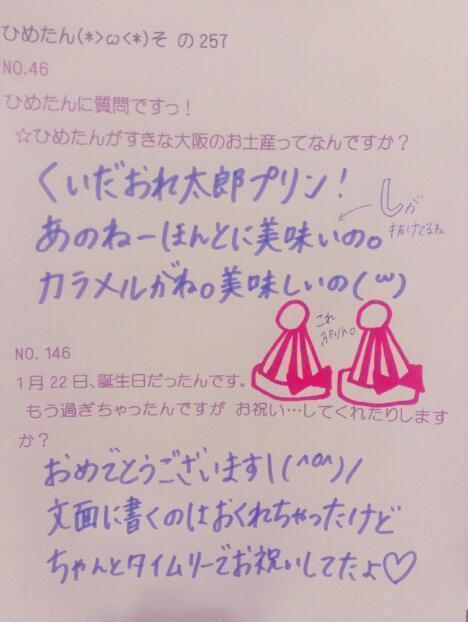 ひめたん(*>ω<*)そ の257
NO.46
ひめたんに質問ですっ！
☆ひめたんがすきな大阪のお土産ってなんですか？
くいだおれ太郎プリン！
あのねーほんとに美味いの。
しが
抜けてるね
カラメルがね。美味しいの(ω)
これ
NO. 146
1月22日、誕生日だったんです。
もう過ぎちゃったんですが お祝い…してくれたりします
か？
おめでとうございます\(^o^)/
文面に書くのはおくれちゃったけど
ちゃんとタイムリーでお祝いしてたよ♡